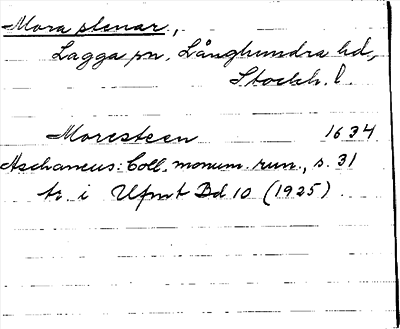 Mora stenar,
Lagga sn. Långhundra hd,
Stockh. l.
Moresteen 1634
Aschaneus: Coll. monum. run., s. 31
tr. i Ufmt Bd 10 (1925)